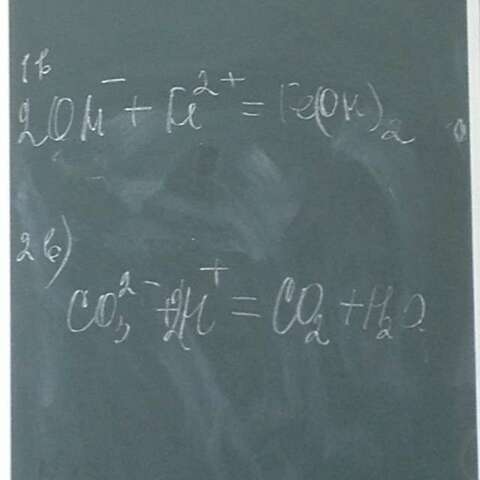 1в
2OH⁻ + Fe²⁺ = Fe(OH)₂
2в)
CO₃²⁻ + 2H⁺ = CO₂ + H₂O